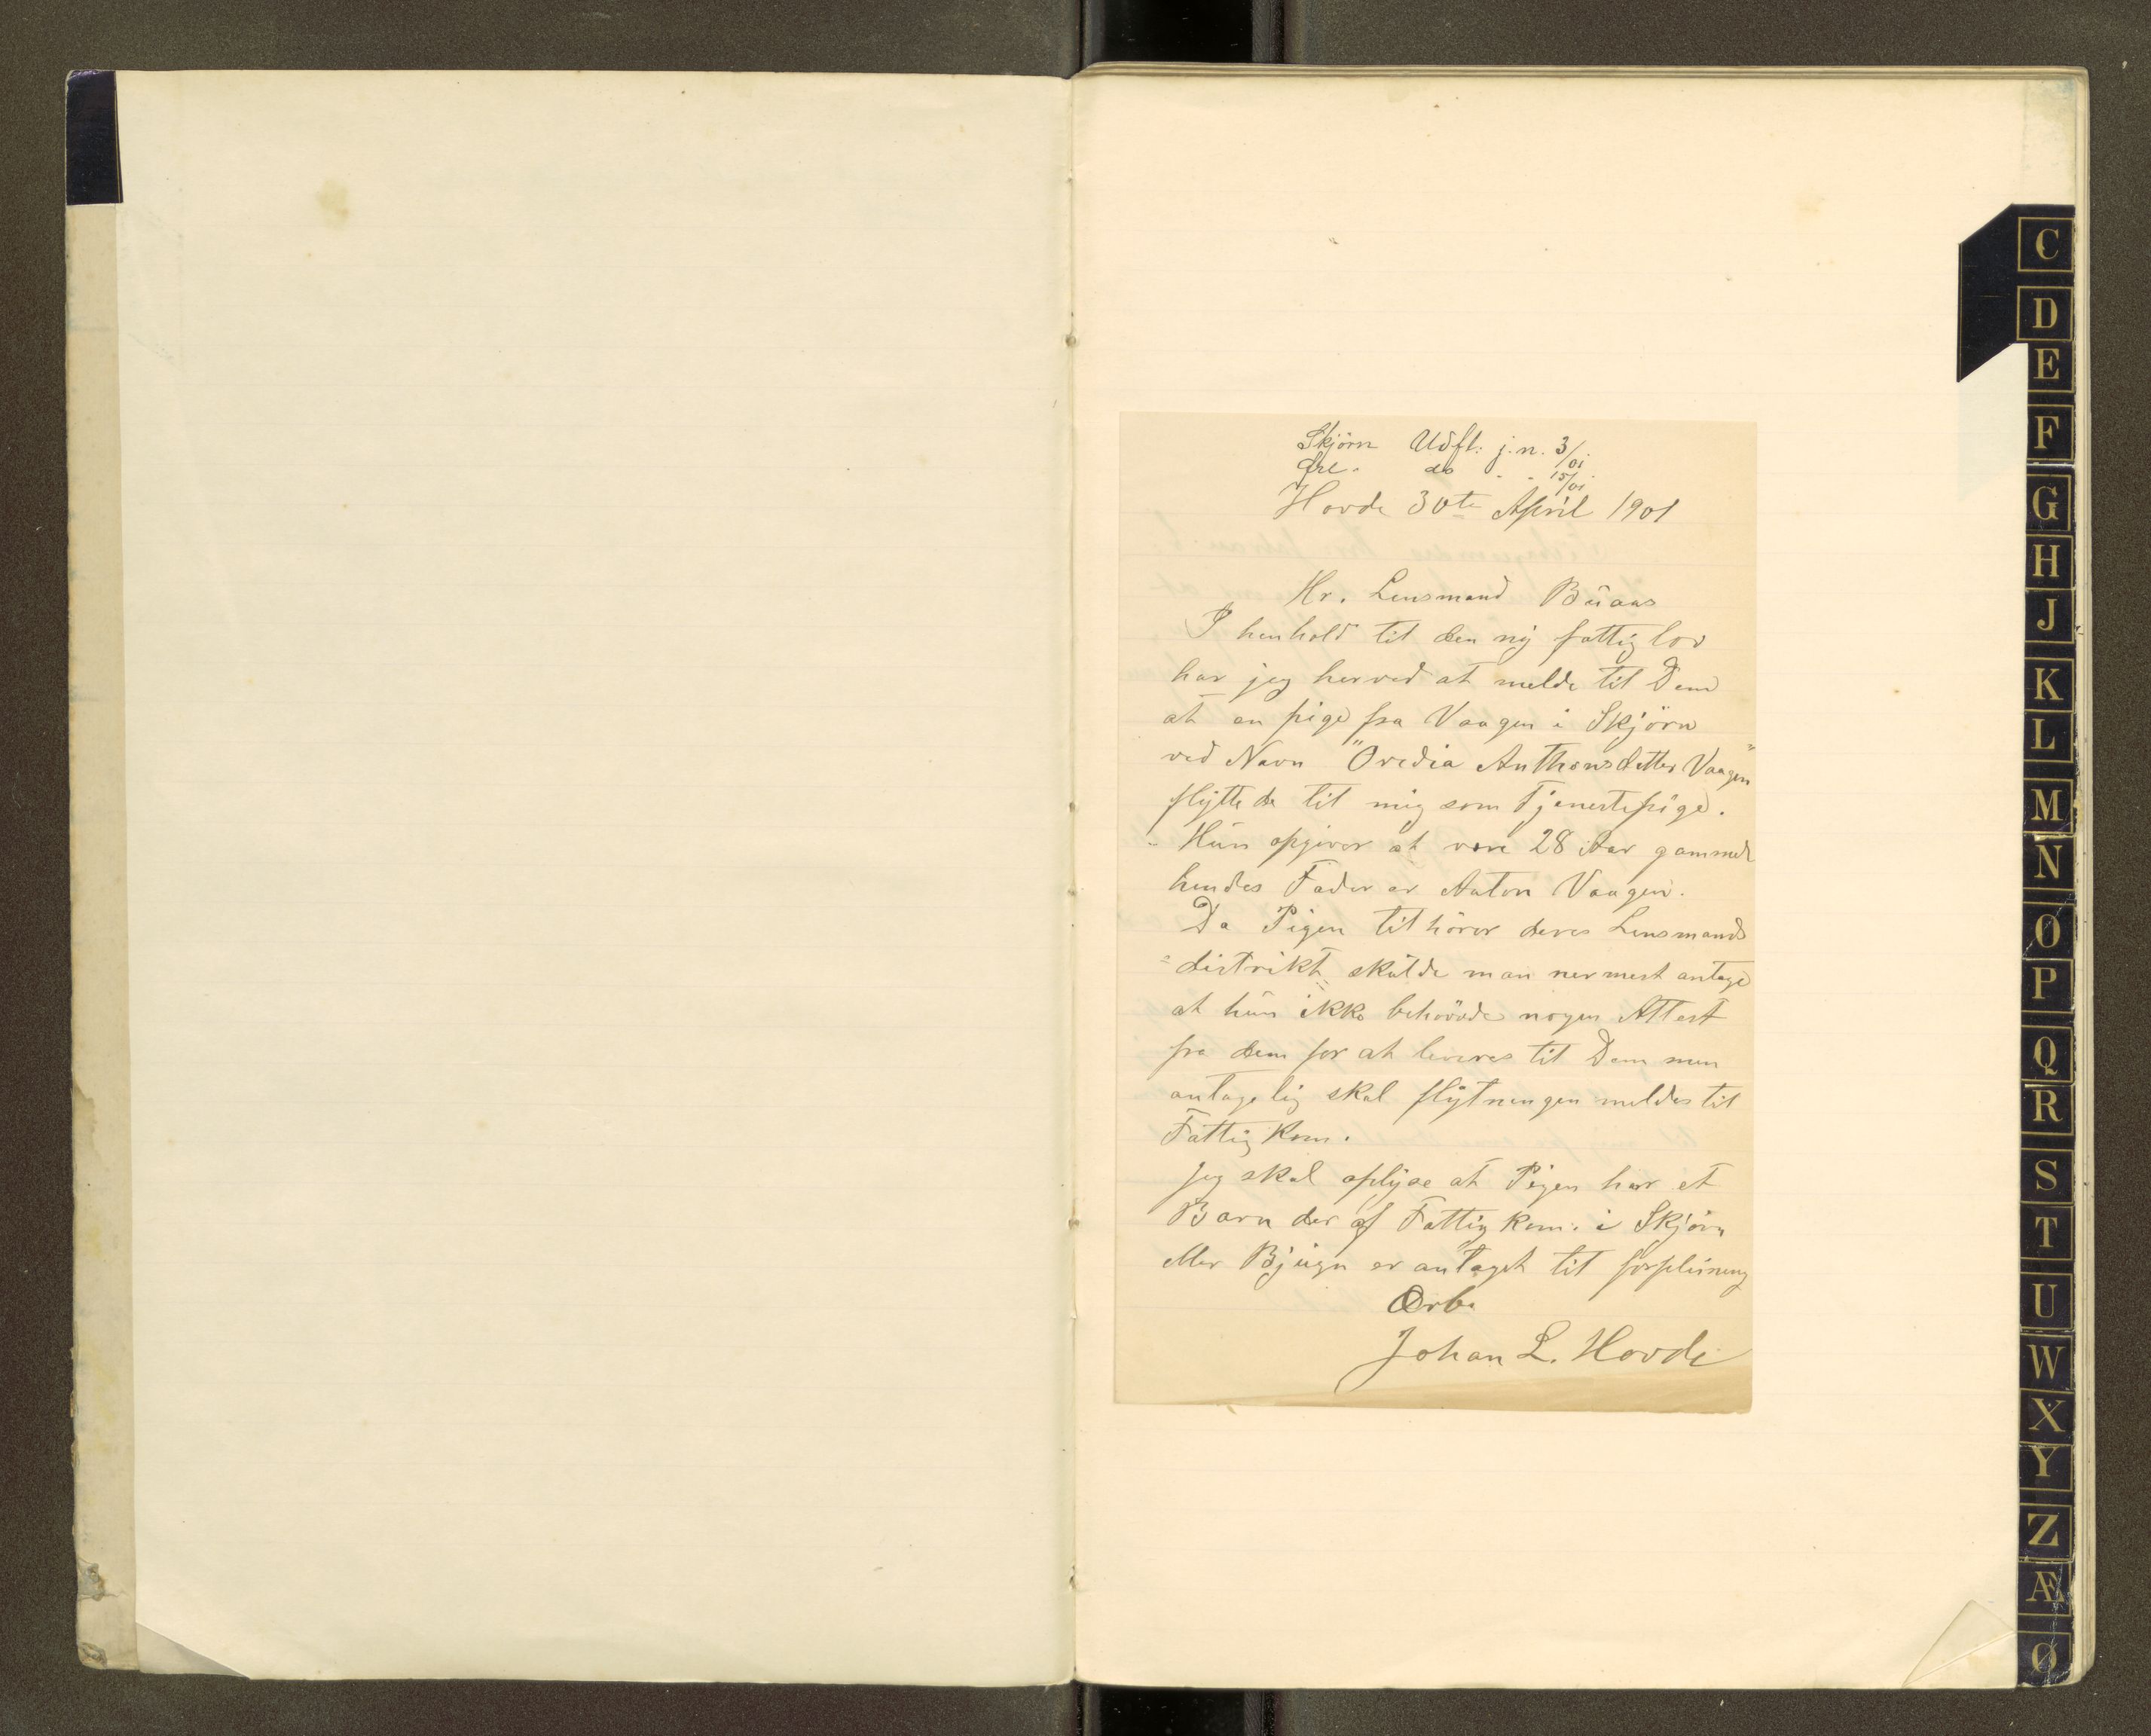 Skjörn Udfl: j.n. 3/01.
Ørl. do - - 15/01.
Hovde 30te April 1901
Hr. Lensmand Buaas
I henhold til den ny fattig lov
har jeg herved at melde til Dem
at en pige fra Vaagen i Skjörn
ved Navn "Ovedia Anthonsdatter Vaagen"
flyttede til mig som Tjenestepige.
- Hun opgiver at være 28 Aar gammel
hendes Fader er Anton Vaagen.
Da Pigen tilhörer deres Lensmands
=distrikt skulde man nermest antage
at hun ikke behövde nogen Attest
fra dem for at leveres til Dem men
antagelig skal flytningen meldes til
Fattig Kom.
Jeg skal oplyse at Pigen har et
Barn der af Fattig kom. i Skjörn
eller Bjugn er antaget til forpleining
Ærb.
Johan L. Hovde
C
D
E
F
G
H
J
K
L
M
N
O
P
Q
R
S
T
U
W
X
Y
Z
Æ
Ø